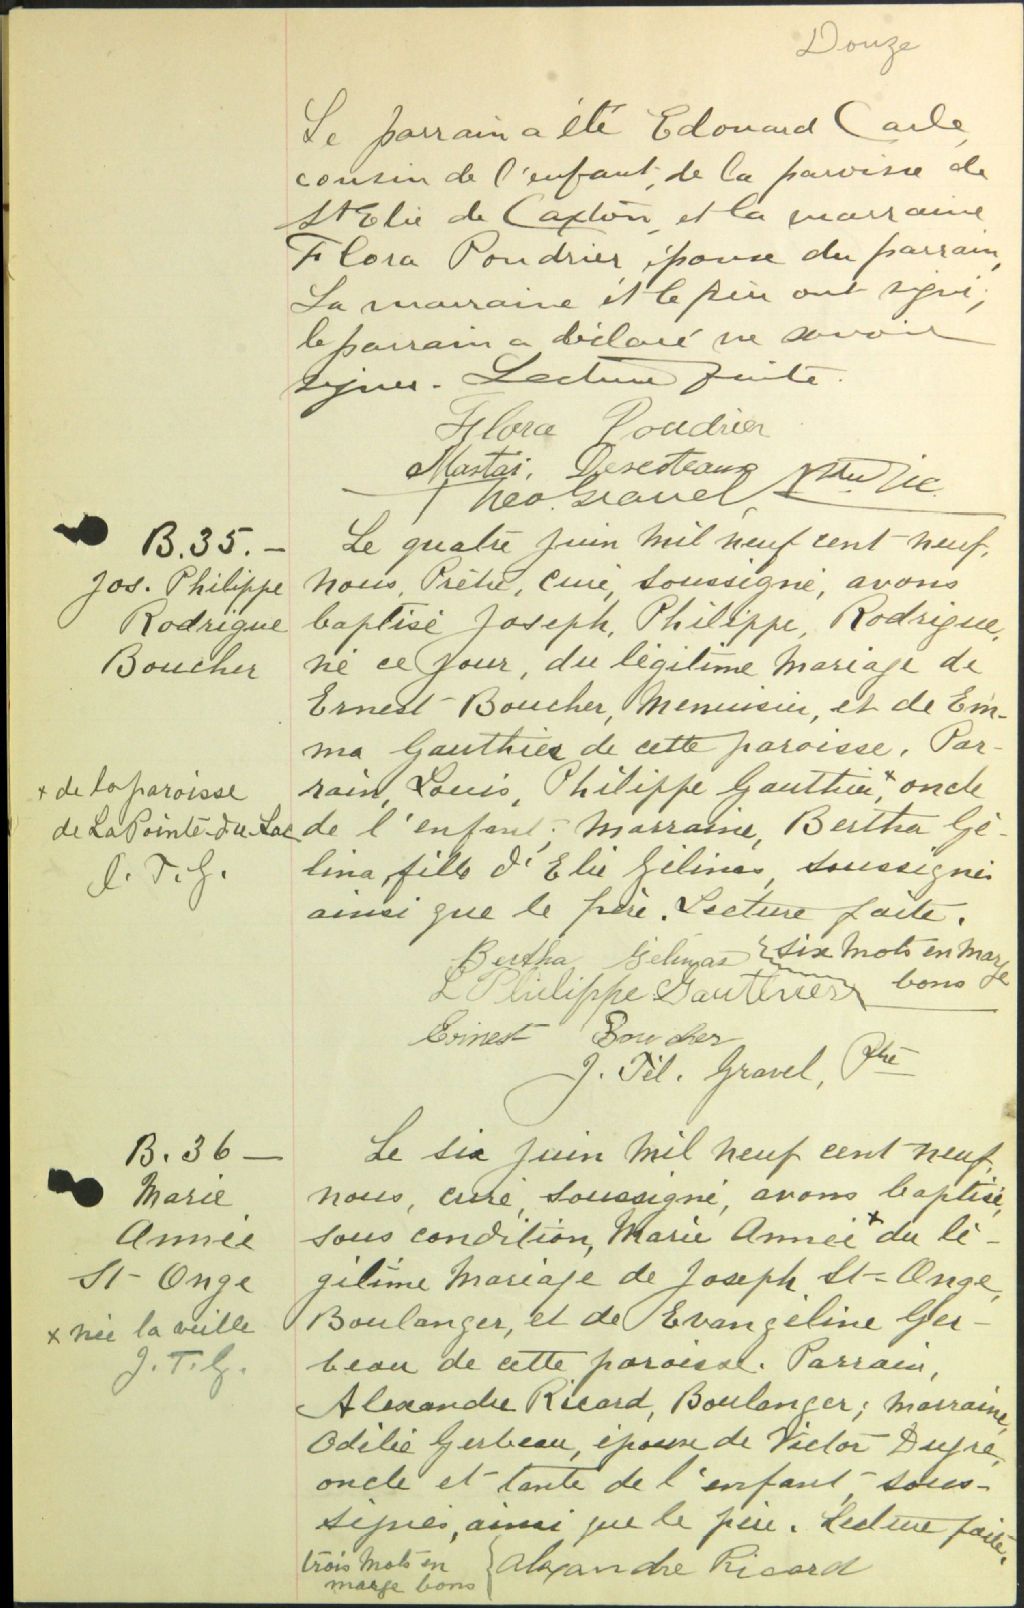 Douze
Le parrain a été Edouard Carle,
cousin de l'enfant, de la paroisse de
St Elie de Caxton, et la marraine
Flora Poudrier, épouse du parrain,
La marraine et le père ont signé;
le parrain a déclaré ne savoir
signer. Lecture faite.
Flora Poudrier
Mastaï. Descoteaux
Theo. Gravel Ptre Vic.
B.35. —
Jos. Philippe
Rodrigue
Boucher
Le quatre Juin Mil neuf cent neuf,
nous, Prêtre, curé, soussigné, avons
baptisé Joseph, Philippe, Rodrigue,
né ce jour, du légitime Mariage de
Ernest Boucher, Menuisier, et de Em-
ma Gauthier de cette paroisse. Par-
rain, Louis, Philippe Gauthier, x oncle
de l'enfant; Marraine, Bertha Gé-
lina, fille d'Elie Gélinas, soussignés
ainsi que le père. Lecture faite.
x de la paroisse
de La Pointe-du-Lac
J. T. G.
Bertha Gélinas
six mots en marge
bons
L Philippe Gauthier
Ernest Boucher
J. Tél. Gravel, Ptre
B. 36 —
Marie
Année
St-Onge
x née la veille
J. T. G.
Le six Juin Mil neuf cent neuf,
nous, curé, soussigné, avons baptisé,
sous condition, Marie Année x du lé-
gitime Mariage de Joseph St-Onge,
Boulanger, et de Evangéline Ger-
beau de cette paroisse. Parrain,
Alexandre Ricard, Boulanger; Marraine,
Odilie Gerbeau, épouse de Victor Dupré,
oncle et tante de l'enfant, sous-
signés, ainsi que le père. Lecture faite.
trois mots en
marge bons
Alexandre Ricard